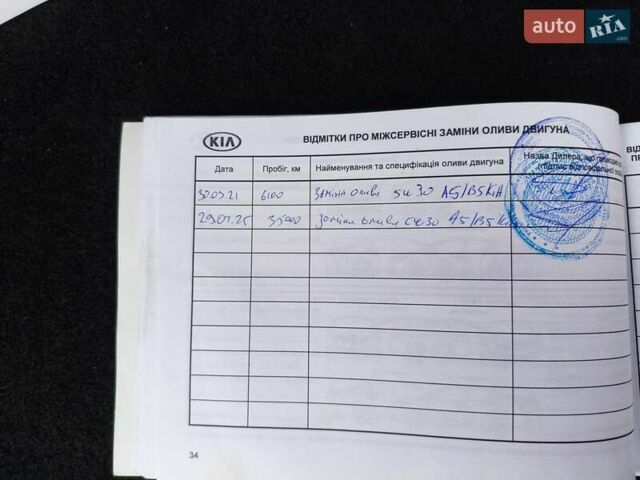 auto RIA .com
KIA
ВІДМІТКИ ПРО МІЖСЕРВІСНІ ЗАМІНИ ОЛИВИ ДВИГУНА
Дата Пробіг, км Найменування та специфікація оливи двигуна Назва Дилера, що
6100 Заміна оливи 5w30 A5/B5 KIA
35000 Заміна оливи 5w30 A5/B5
34